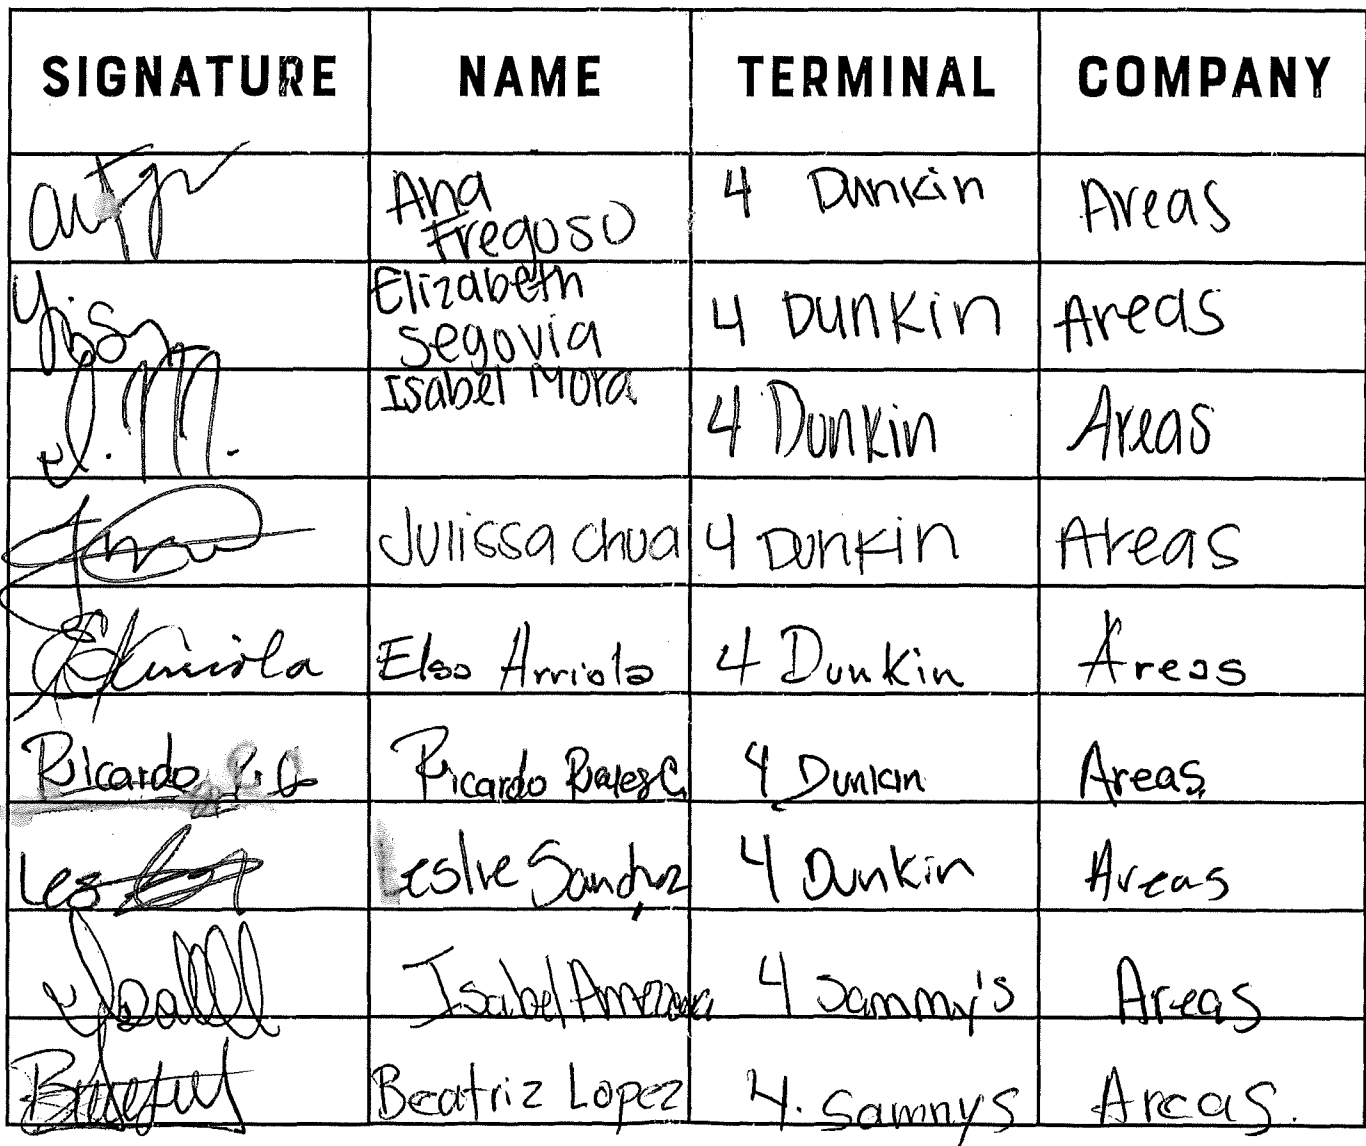 SIGNATURE NAME TERMINAL COMPANY
Ana Fregoso 4 Dunkin Areas
Elizabeth Segovia 4 Dunkin Areas
I. M. Isabel Mora 4 Dunkin Areas
Julissa Chua 4 Dunkin Areas
Arriola Elsa Arriola 4 Dunkin Areas
Ricardo R. C. Ricardo C. 4 Dunkin Areas
Les Leslie Sanchez 4 Dunkin Areas
Isabel 4 Sammy's Areas
Beatriz Lopez 4. Sammys Areas.